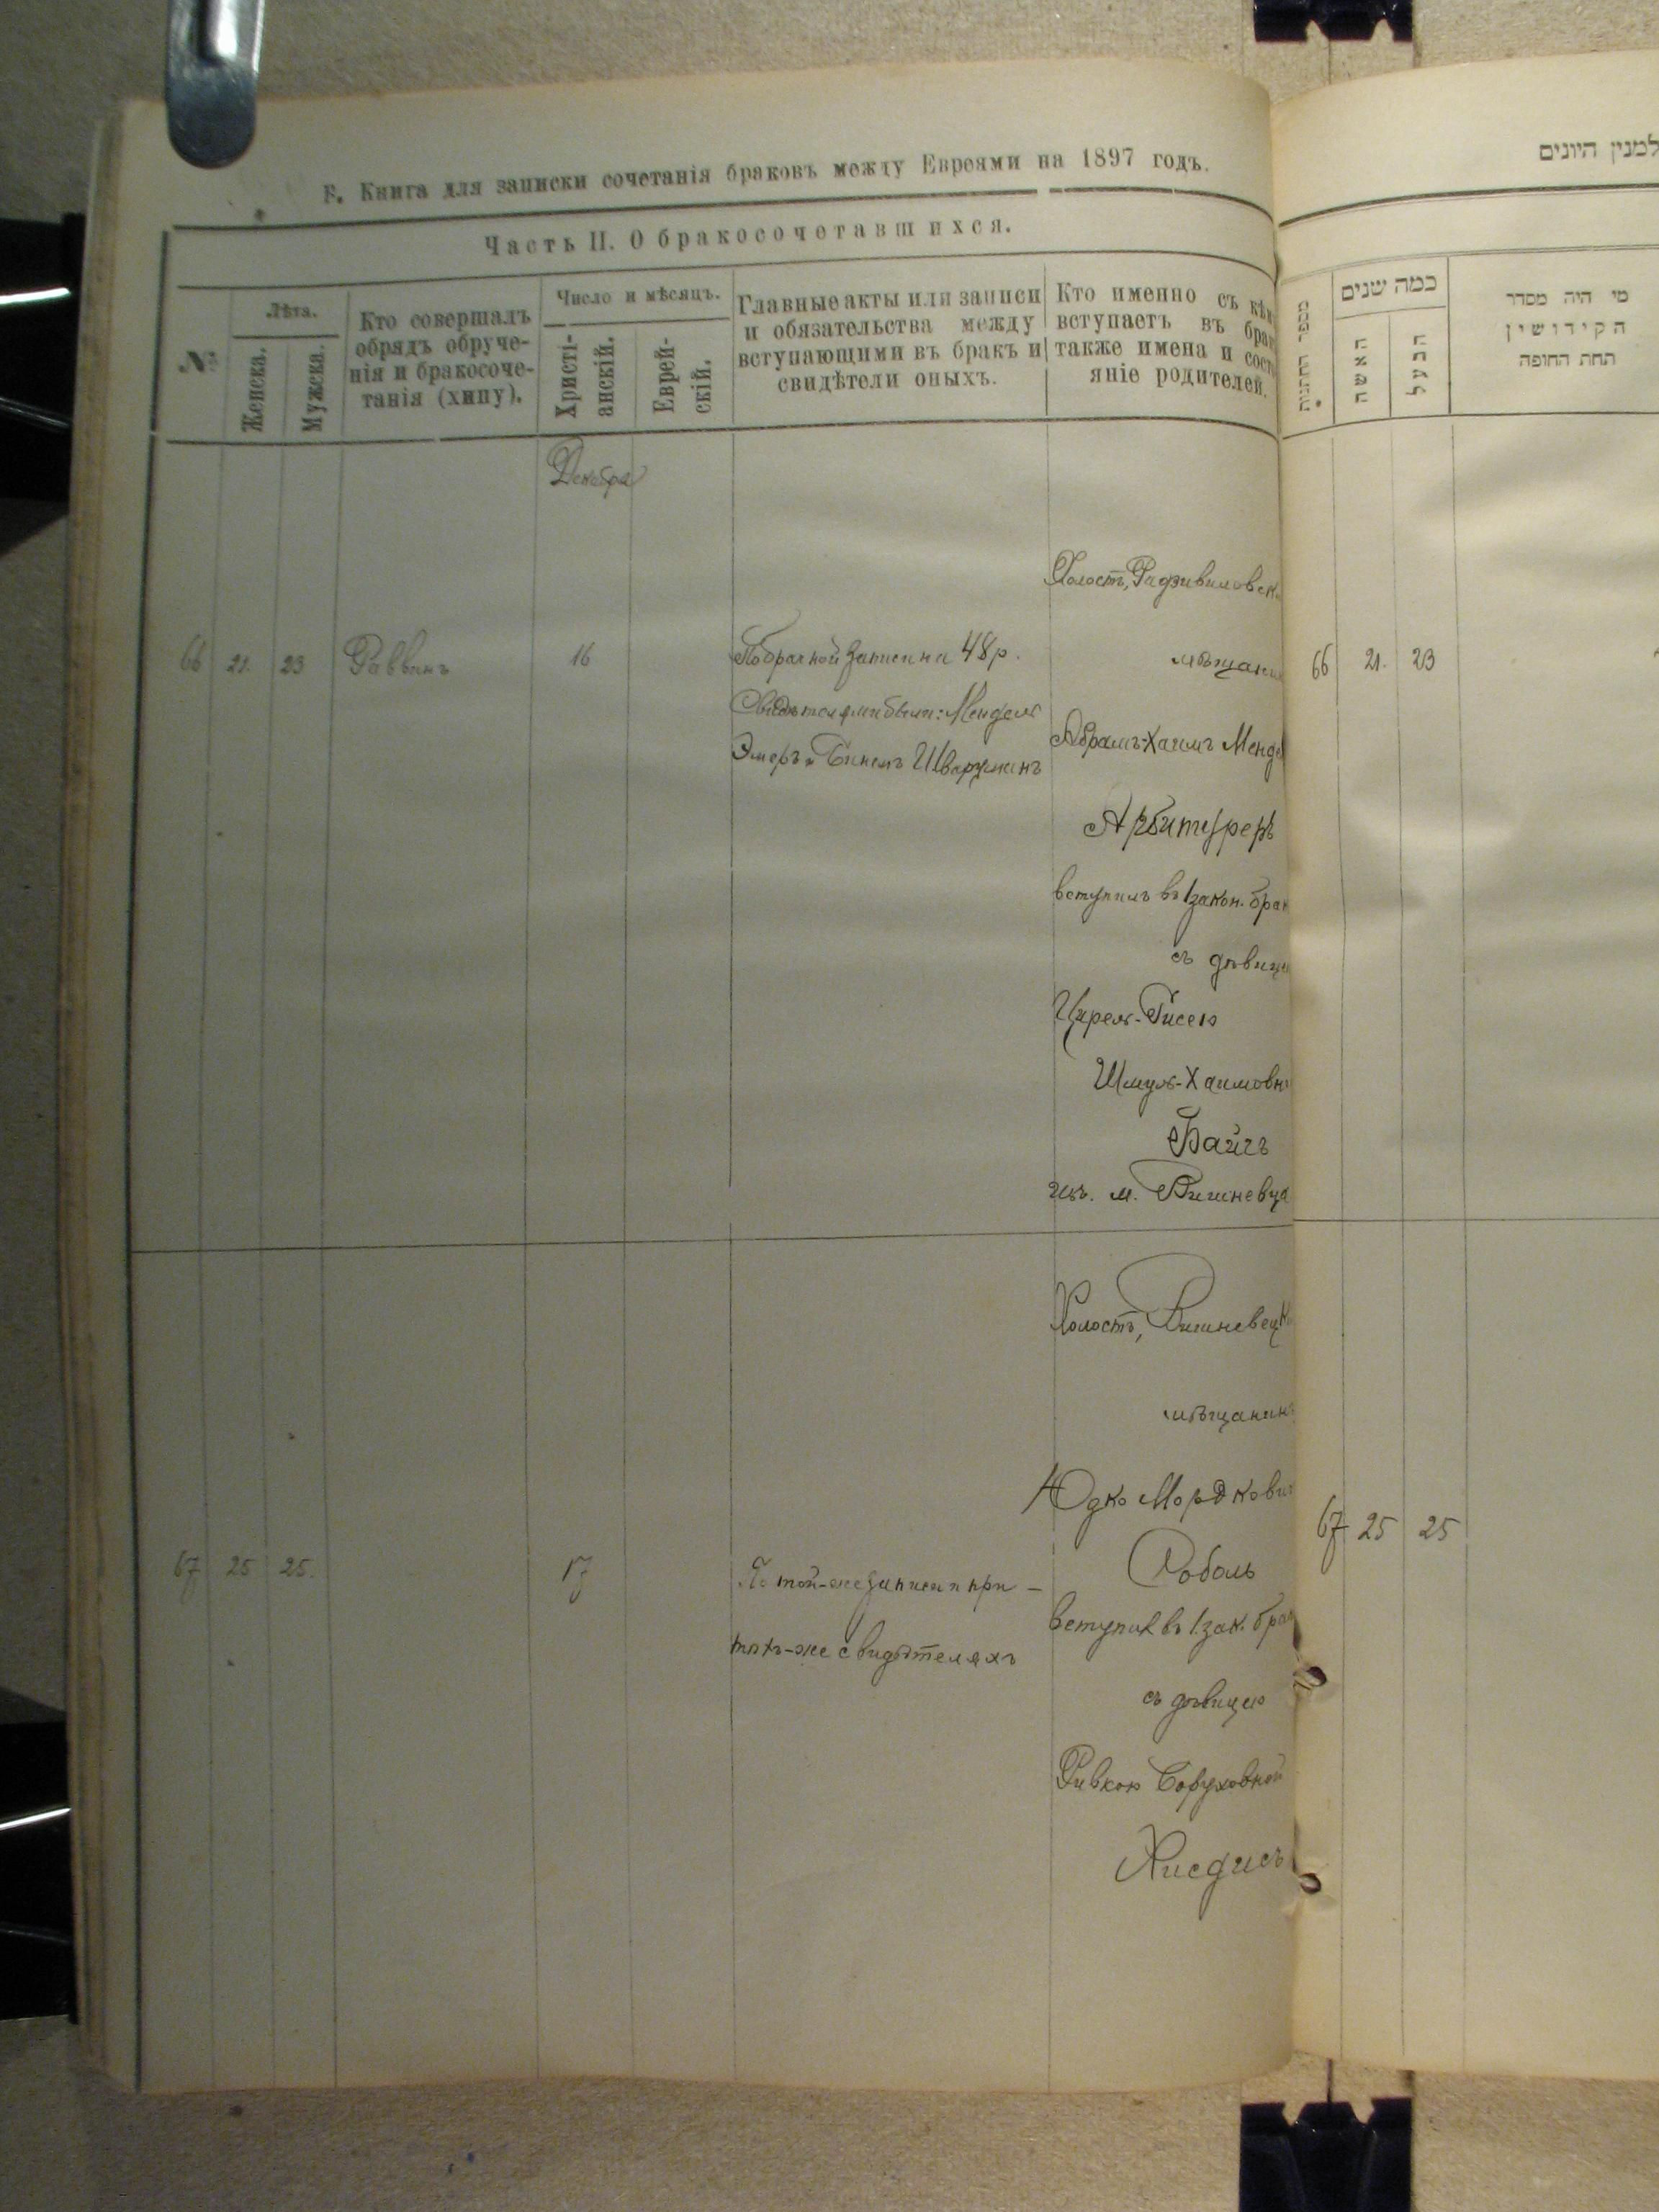 Б. Книга для записки сочетанія браковъ между Евреями на 1897 годъ.
Часть II. О бракосочетавшихся.
№
Лѣта.
Женска.
Мужска.
Кто совершалъ
обрядъ обруче-
нія и бракосоче-
танія (хипу).
Число и мѣсяцъ.
Христі-
анскій.
Еврей-
скій.
Главные акты или записи
и обязательства между
вступающими въ бракъ и
свидѣтели оныхъ.
Кто именно съ кѣм
вступаетъ въ брак
также имена и состо
яніе родителей.
Декабря
66 21. 23 Раввинъ 16
По брачной записи на 48 р.
Свидѣтелями были: Мендель
Эмеръ и Бинемъ Шварцманъ
Холостъ, Радзивиловск
мѣщанин
Абрамъ-Хаимъ Менде
Арбитуреръ
вступилъ въ 1 закон. брак
съ дѣвице
Цирель-Гисею
Шмуль-Хаимовн
Байчъ
изъ. м. Вишневца
67 25 25. 17
По той-же записи и при -
тѣхъ-же свидѣтеляхъ
Холостъ, Вишневецк
мѣщанинъ
Юдко Мордкович
Роболь
вступил въ 1 зак. брак
съ дѣвицею
Ривкою Боруховной
Хисдисъ
למנין היונים
מספר החתונות
כמה שנים
האשה
הבעל
מי היה מסדר
הקידושין
תחת החופה
66 21. 23
67 25 25